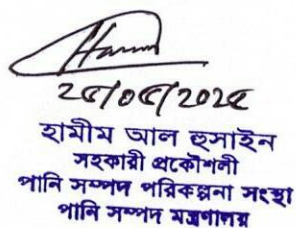 ২৫/০৫/২০২৫
হামীম আল হুসাইন
সহকারী প্রকৌশলী
পানি সম্পদ পরিকল্পনা সংস্থা
পানি সম্পদ মন্ত্রণালয়